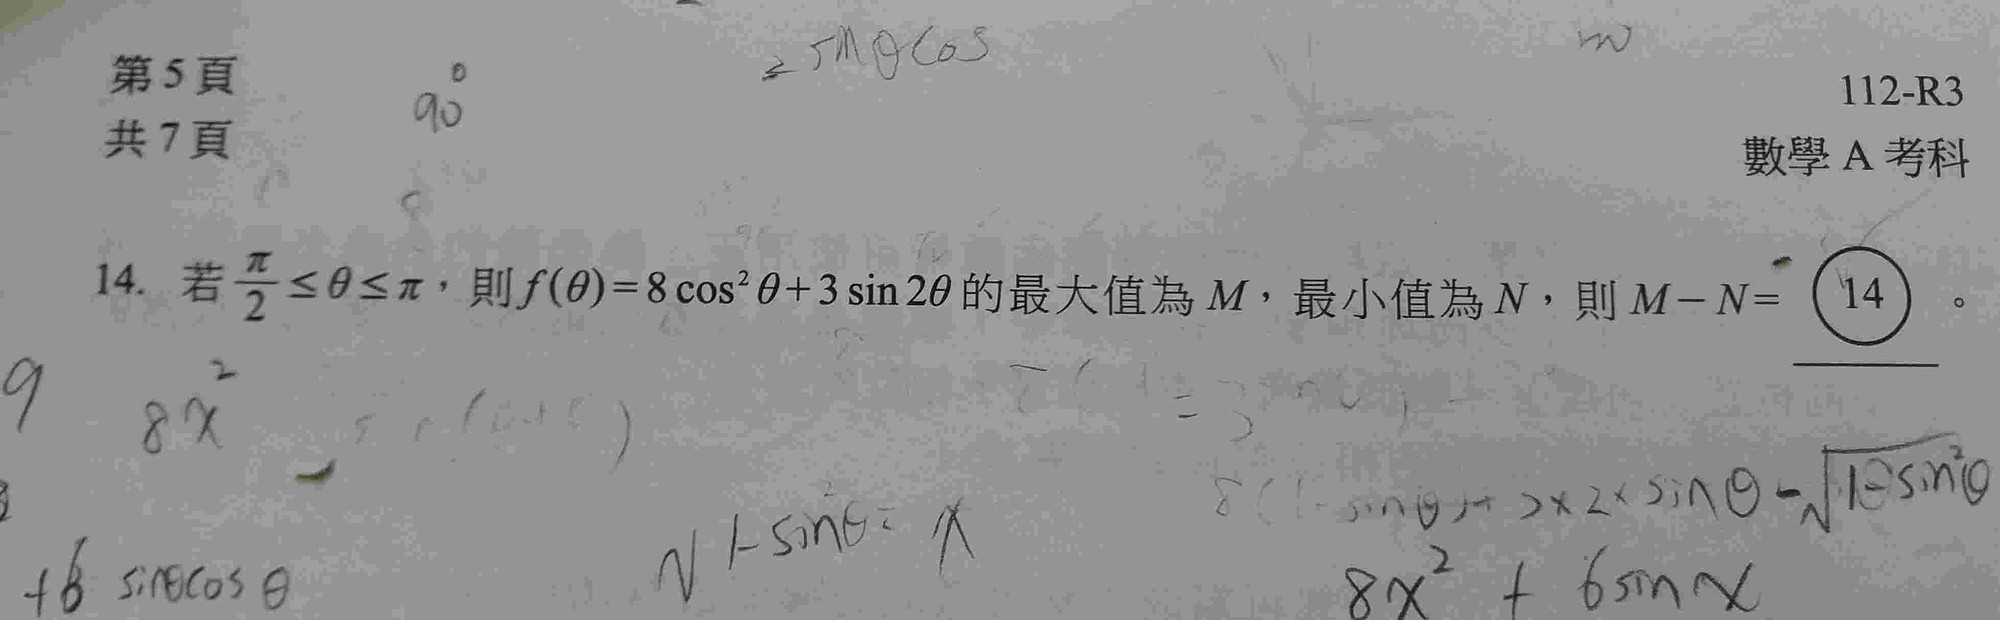 第5頁
共7頁
90°
sinθcos
112-R3
數學 A 考科
14. 若 π/2 ≤ θ ≤ π，則 f(θ) = 8 cos² θ + 3 sin 2θ 的最大值為 M，最小值為 N，則 M − N = 14 。
9
8x²
+6 sinθcosθ
√1-sin²θ = x
8x² + 6sin x